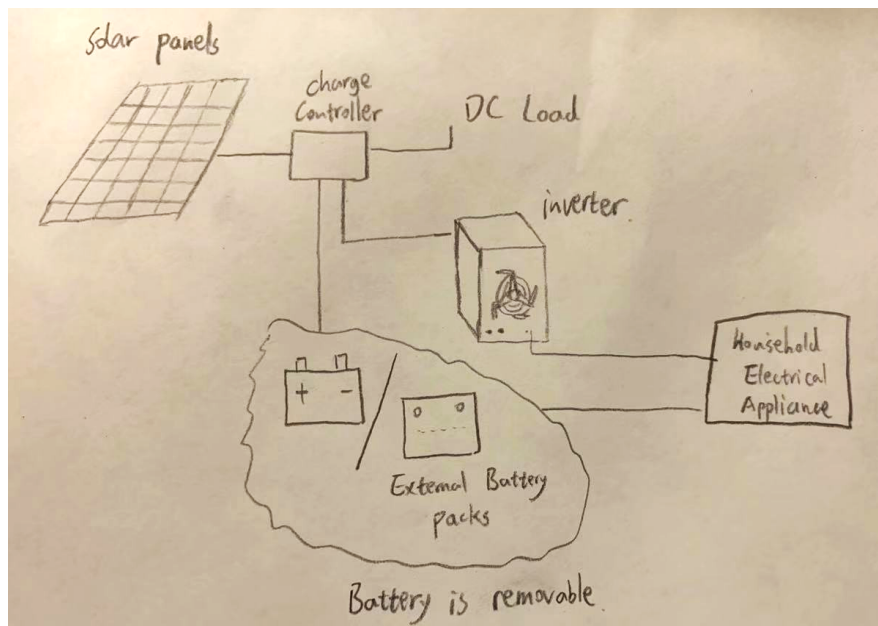 Solar panels
charge
Controller
DC Load
inverter.
+ -
Household
Electrical
Appliance
External Battery
packs
Battery is removable.